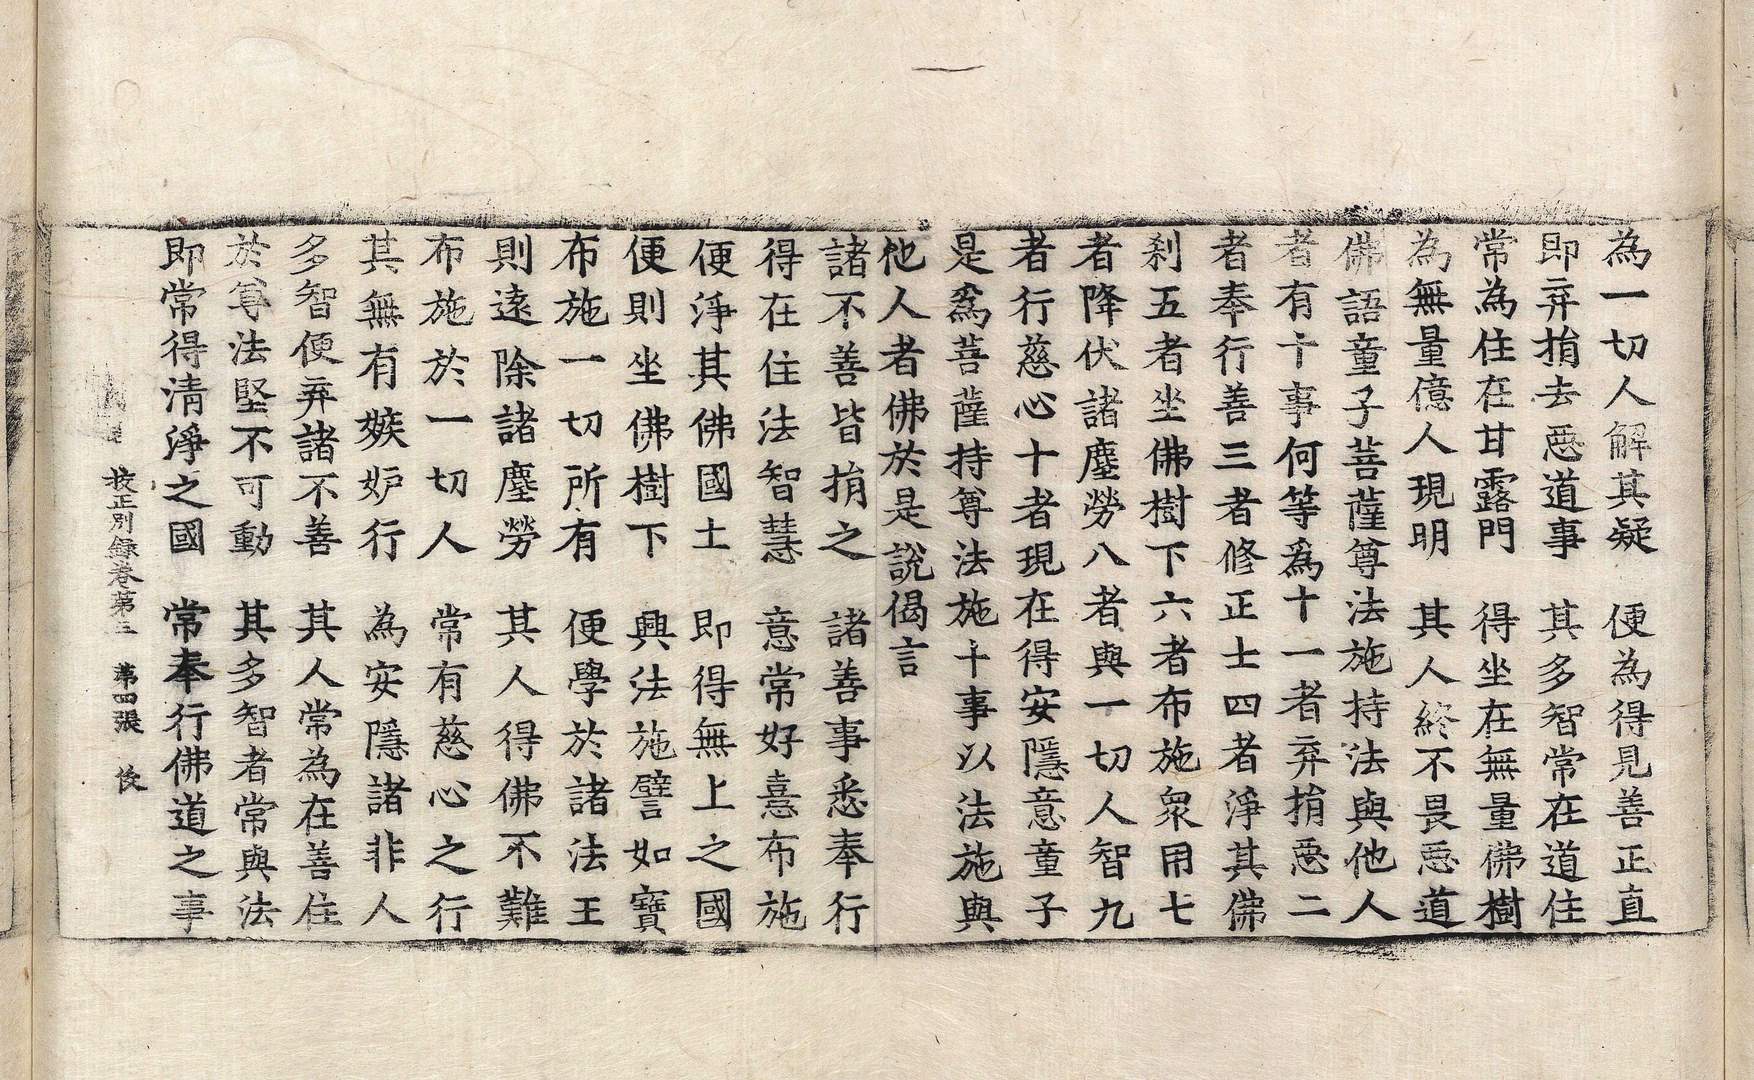 為一切人解其疑　便為得見善正直
即弃捐去惡道事　其多智常在道住
常為住在甘露門　得坐在無量佛樹
為無量億人現明　其人終不畏惡道
佛語童子菩薩尊法施持法與他人
者有十事何等為十一者弃捐惡二
者奉行善三者修正士四者淨其佛
刹五者坐佛樹下六者布施眾用七
者降伏諸塵勞八者與一切人智九
者行慈心十者現在得安隱意童子
是為菩薩持尊法施十事以法施與
他人者佛於是說偈言
諸不善皆捐之　諸善事悉奉行
得在住法智慧　意常好憙布施
便淨其佛國土　即得無上之國
便則坐佛樹下　興法施譬如寶
布施一切所有　便學於諸法王
則遠除諸塵勞　其人得佛不難
布施於一切人　常有慈心之行
其無有嫉妒行　為安隱諸非人
多智便弃諸不善　其人常為在善住
於尊法堅不可動　其多智者常與法
即常得清淨之國　常奉行佛道之事
校正別錄卷第三　第四張